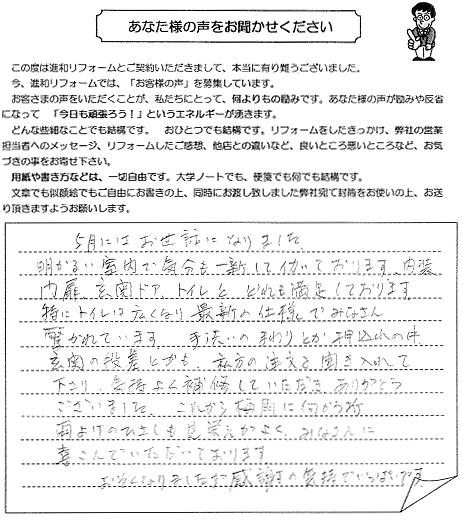 あなた様の声をお聞かせください
この度は進和リフォームとご契約いただきまして、本当に有り難うございました。
今、進和リフォームでは、「お客様の声」を募集しています。
お客さまの声をいただくことが、私たちにとって、何よりもの励みです。あなた様の声が励みや反省
になって　「今日も頑張ろう！」というエネルギーが湧きます。
どんな些細なことでも結構です。　おひとつでも結構です。リフォームをしたきっかけ、弊社の営業
担当者へのメッセージ、リフォームしたご感想、他店との違いなど、良いところ悪いところなど、お気
づきの事をお寄せ下さい。
用紙や書き方などは、一切自由です。大学ノートでも、便箋でも何でも結構です。
文章でも似顔絵でもご自由にお書きの上、同時にお渡し致しました弊社宛て封筒をお使いの上、お送
り頂きますようお願いします。
5月にはお世話になりました
明かるい室内で気分も一新して　　おります。内装
内扉、玄関ドア、トイレと、どれも満足しております
特にトイレは広くなり最新の仕様でみなさん
驚かれています。手洗いの　　とか押入れの中
玄関の段差とかも、　　の注文を聞き入れて
下さり、気持よく補修していただき ありがとう
ございました。これから梅雨に向かう所
雨よけのひさしも見栄えがよく、みなさんに
喜こんでいただいております
おそくなりましたが感謝の気持でいっぱいです